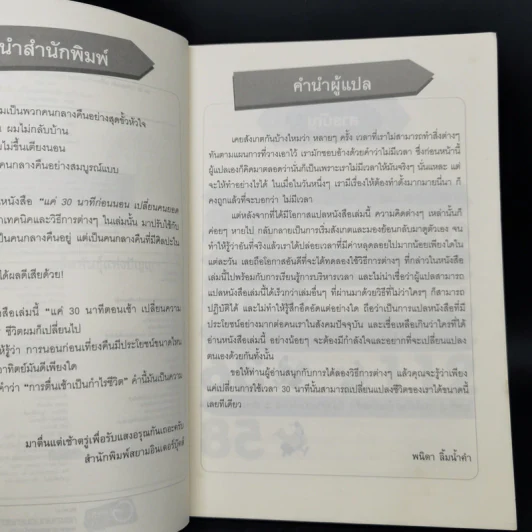 นำสำนักพิมพ์
มเป็นพวกคนกลางคืนอย่างสุดขั้วหัวใจ
ผมไม่กลับบ้าน
ไม่ขึ้นเตียงนอน
คนกลางคืนอย่างสมบูรณ์แบบ
หนังสือ "แค่ 30 นาทีก่อนนอน เปลี่ยนคนยอด
เทคนิคและวิธีการต่างๆ ในเล่มนั้น มาปรับใช้กับ
เป็นคนกลางคืนอยู่ แต่เป็นคนกลางคืนที่มีศิลปะใน
ได้ผลดีเสียด้วย!
สือเล่มนี้ "แค่ 30 นาทีตอนเช้า เปลี่ยนความ
ชีวิตผมก็เปลี่ยนไป
รู้ว่า การนอนก่อนเที่ยงคืนมีประโยชน์ขนาดไหน
อาทิตย์มันดีเพียงใด
คำว่า "การตื่นเช้าเป็นกำไรชีวิต" คำนี้มันเป็นความ
มาตื่นแต่เช้าตรู่เพื่อรับแสงอรุณกันเถอะครับ
สำนักพิมพ์สยามอินเตอร์บุ๊คส์
คำนำผู้แปล
เคยสังเกตกันบ้างไหมว่า หลายๆ ครั้ง เวลาที่เราไม่สามารถทำสิ่งต่างๆ
ทันตามแผนการที่วางเอาไว้ เรามักชอบอ้างด้วยคำว่าไม่มีเวลา ซึ่งก่อนหน้านี้
ผู้แปลเองก็คิดมาตลอดว่านั่นก็เป็นเพราะเราไม่มีเวลาให้มันจริงๆ นั่นแหละ แต่
จะให้ทำอย่างไรได้ ในเมื่อในวันหนึ่งๆ เรามีเรื่องให้ต้องทำตั้งมากมายนี่นา ก็
คงถูกแล้วที่จะบอกว่า ไม่มีเวลา
แต่หลังจากที่ได้มีโอกาสแปลหนังสือเล่มนี้ ความคิดต่างๆ เหล่านั้นก็
ค่อยๆ หายไป กลับกลายเป็นการเริ่มสังเกตและมองย้อนกลับมาดูตัวเอง จน
ทำให้รู้ว่าอันที่จริงแล้วเราได้ปล่อยเวลาที่มีค่าหลุดลอยไปมากน้อยเพียงใดใน
แต่ละวัน เลยถือโอกาสอันดีที่จะได้ทดลองใช้วิธีการต่างๆ ที่กล่าวในหนังสือ
เล่มนี้ไปพร้อมกับการเรียนรู้การบริหารเวลา และไม่น่าเชื่อว่าผู้แปลสามารถ
แปลหนังสือเล่มนี้ได้เร็วกว่าเล่มอื่นๆ ที่ผ่านมาด้วยวิธีที่ไม่ว่าใครๆ ก็สามารถ
ปฏิบัติได้ และไม่ทำให้รู้สึกอึดอัดแต่อย่างใด ถือว่าเป็นการแปลหนังสือที่มี
ประโยชน์อย่างมากต่อคนเราในสังคมปัจจุบัน และเชื่อเหลือเกินว่าใครที่ได้
อ่านหนังสือเล่มนี้ อย่างน้อยๆ จะต้องมีกำลังใจและอยากที่จะเปลี่ยนแปลง
ตนเองด้วยกันทั้งนั้น
ขอให้ท่านผู้อ่านสนุกกับการได้ลองวิธีการต่างๆ แล้วคุณจะรู้ว่าเพียง
แค่เปลี่ยนการใช้เวลา 30 นาทีนั้นสามารถเปลี่ยนแปลงชีวิตของเราได้ขนาดนี้
เลยทีเดียว
พนิดา ลิ้มน้ำคำ